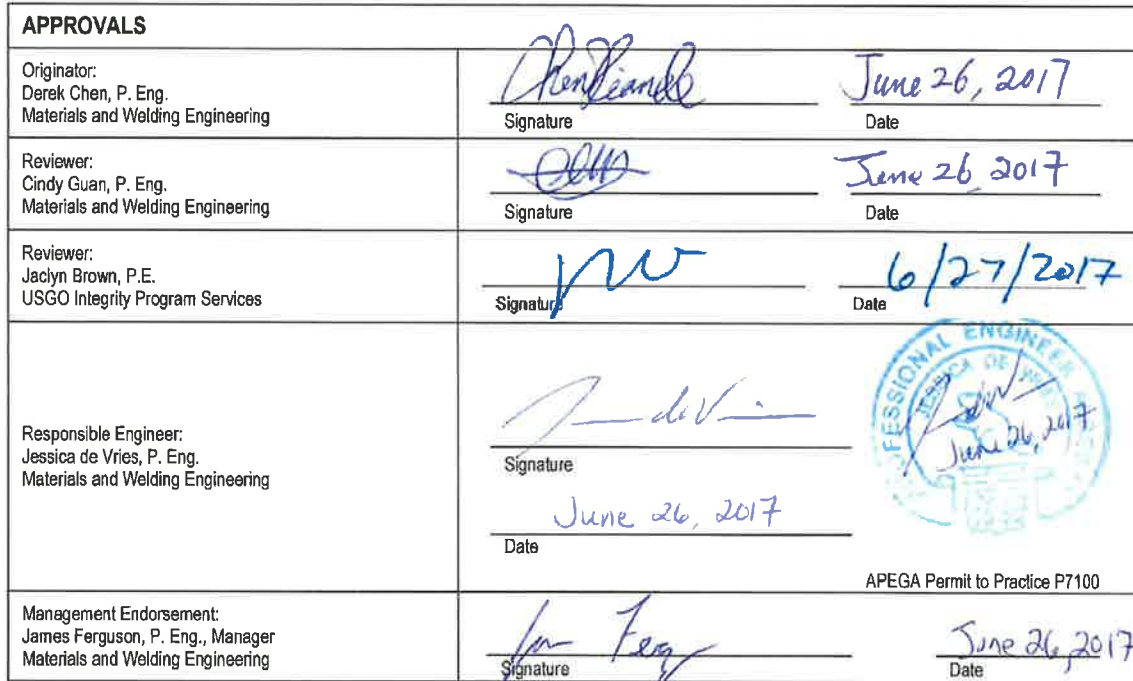 APPROVALS
Originator:
Derek Chen, P. Eng.
Materials and Welding Engineering
June 26, 2017
Signature
Date
Reviewer:
Cindy Guan, P. Eng.
Materials and Welding Engineering
June 26, 2017
Signature
Date
Reviewer:
Jaclyn Brown, P.E.
USGO Integrity Program Services
6/27/2017
Signature
Date
Responsible Engineer:
Jessica de Vries, P. Eng.
Materials and Welding Engineering
Signature
June 26, 2017
Date
PROFESSIONAL ENGINEER
JESSICA DE
June 26, 2017
APEGA Permit to Practice P7100
Management Endorsement:
James Ferguson, P. Eng., Manager
Materials and Welding Engineering
June 26, 2017
Signature
Date